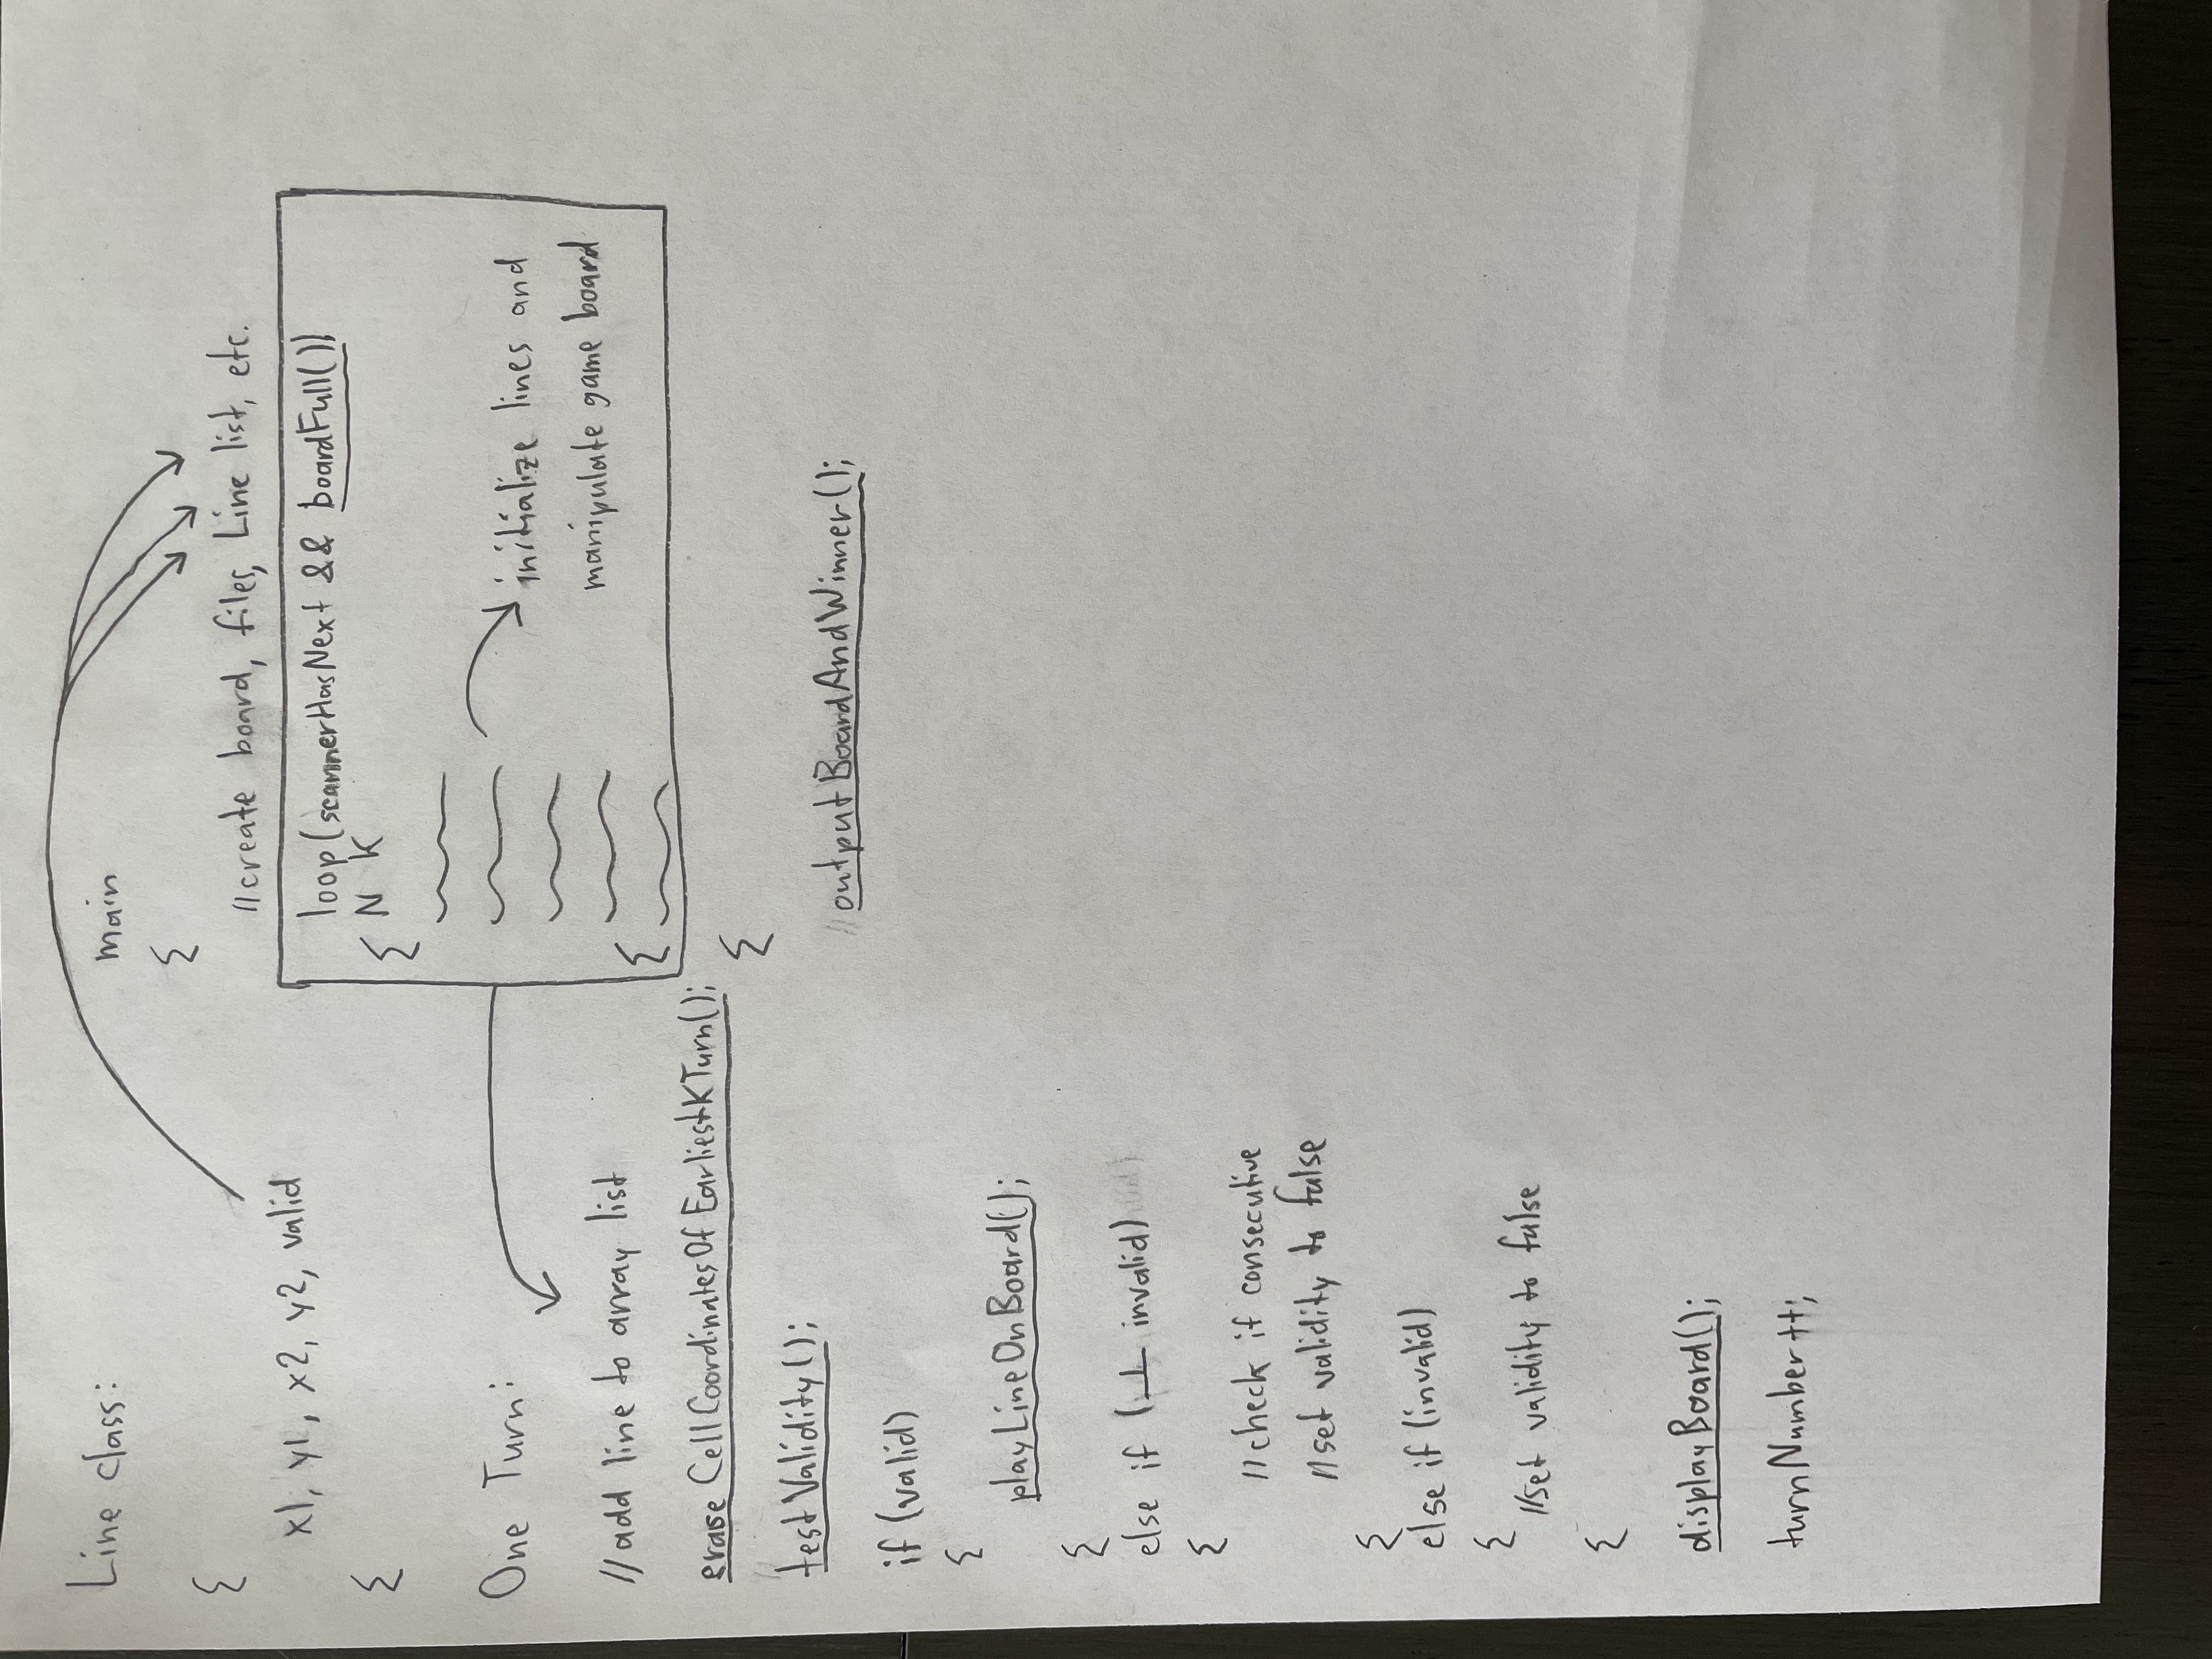 Line class:
{
x1, y1, x2, y2, valid
{
One Turn:
//add line to array list
eraseCellCoordinatesOfEarliestKTurn();
testValidity();
if (valid)
{
playLineOnBoard();
{
else if (⊥ invalid)
{
//check if consecutive
//set validity to false
{
else if (invalid)
{
//set validity to false
{
displayBoard();
turnNumber++;
main
{
//create board, files, Line list, etc.
loop(scannerHasNext && boardFull())
{ N K
initialize lines and
manipulate game board
{
{
outputBoardAndWinner();